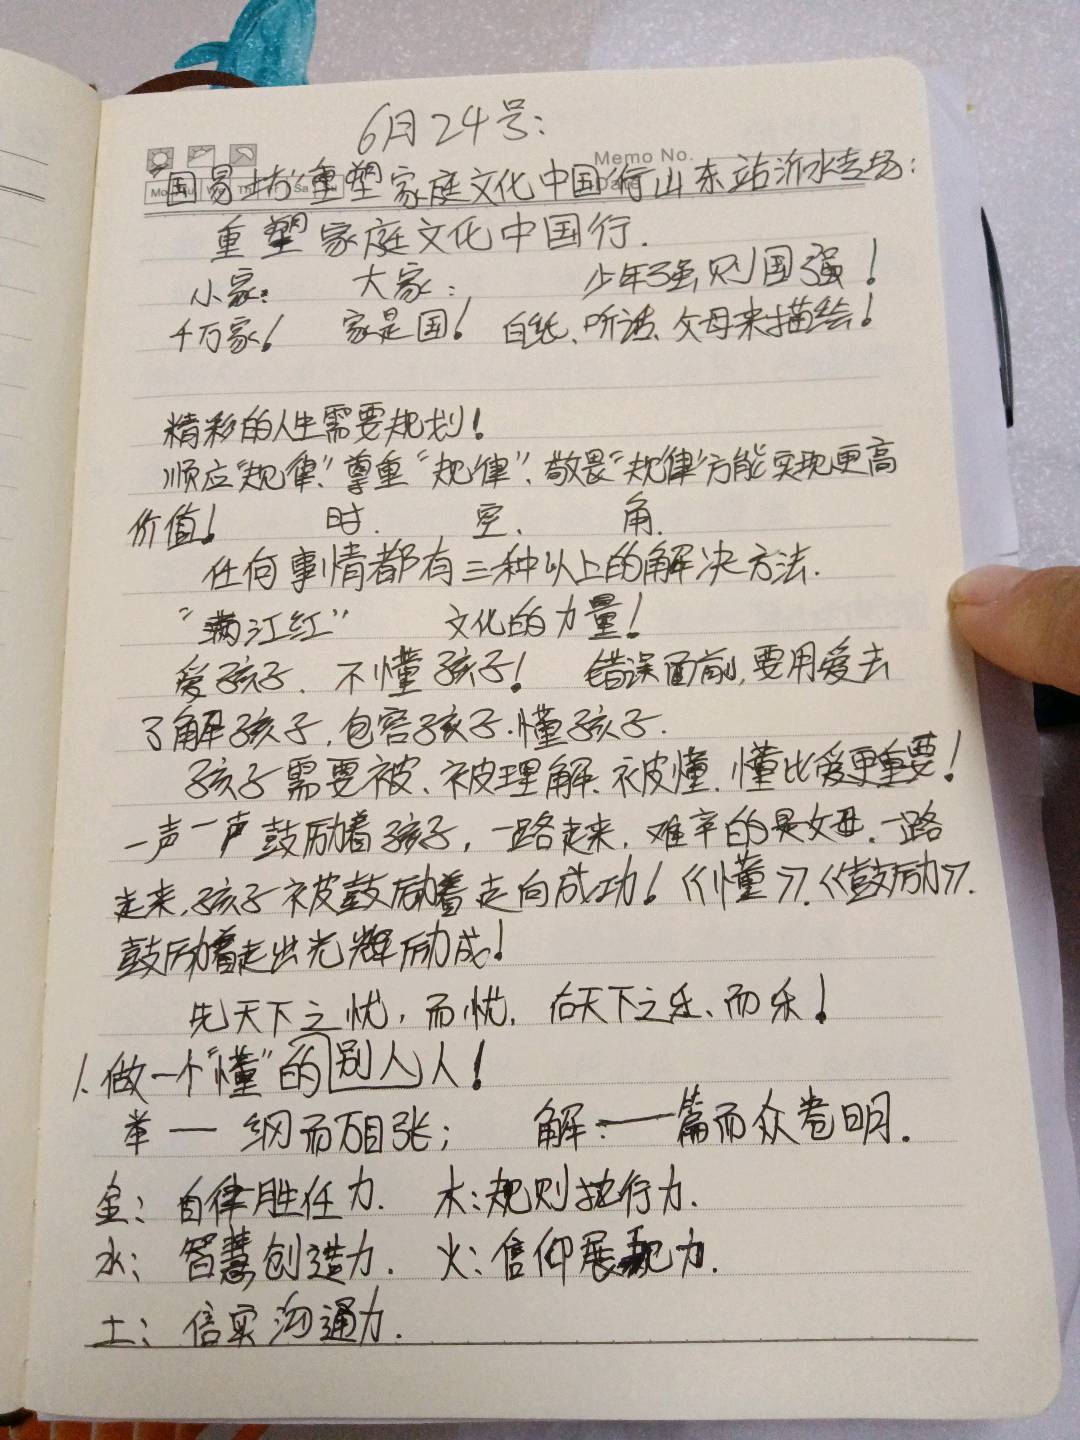 6月24号:
Memo No.
Date
"国易坊"重塑家庭文化中国行山东站沂水专场:
重塑家庭文化中国行.
小家: 大家: 少年强则国强!
千万家! 家是国! 白纸、听话、父母来描绘!
精彩的人生需要规划!
顺应"规律"、尊重"规律"、敬畏"规律"方能实现更高
价值! 时. 空. 角.
任何事情都有三种以上的解决方法.
"满江红" 文化的力量!
爱孩子、不懂孩子! 错误面前,要用爱去
了解孩子,包容孩子.懂孩子.
孩子需要被、被理解、被懂、懂比爱更重要!
一声一声鼓励着孩子,一路走来,难辛的是父母.一路
走来,孩子被鼓励着走向成功!《懂》.《鼓励》.
鼓励着走出光辉励成!
先天下之忧,而忧,后天下之乐、而乐!
1.做一个"懂"的别人人!
举一纲而万目张; 解:一篇而众卷明.
金:自律胜任力. 木:规则执行力.
水:智慧创造力. 火:信仰展现力.
土:信实沟通力.